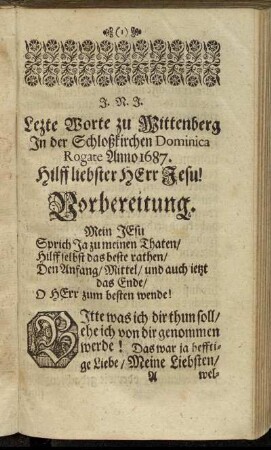 (1)
J. N. J.
Lezte Worte zu Wittenberg
In der Schloßkirchen Dominica
Rogate Anno 1687.
Hilff liebster HErr Jesu!
Vorbereitung.
Mein JEsu
Sprich Ja zu meinen Thaten/
Hilff selbst das beste rathen/
Den Anfang/ Mittel/ und auch ietzt
das Ende/
O HErr zum besten wende!
BItte was ich dir thun soll/
ehe ich von dir genommen
werde! Das war ja hefftige
ge Liebe/ Meine Liebsten/
A wel-